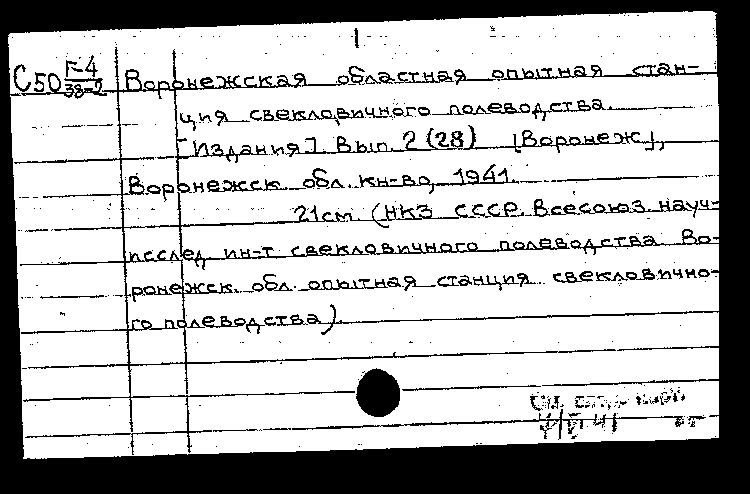 С50 Г-4/38-2 Воронежская областная опытная стан-
ция свекловичного полеводства.
[Издания]. Вып. 2 (28) [Воронеж],
Воронежск. обл. кн-во, 1941.
21 см. (НКЗ СССР. Всесоюз. науч-
исслед. ин-т свекловичного полеводства Во-
ронежск. обл. опытная станция свекловично-
го полеводства).
См.
41